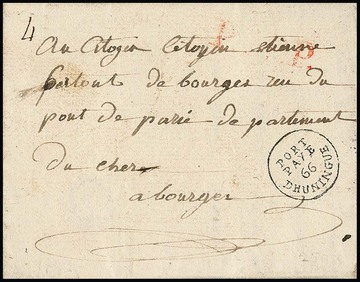 4
P
P
au Citoyen Citoyen etienne
bertont de bourges reu du
pont de parié departement
du cher
a bourges
PORT
PAYÉ
66
D'HUNINGUE